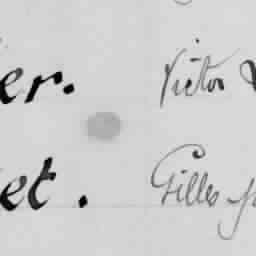 er. Victor
et. Gilles